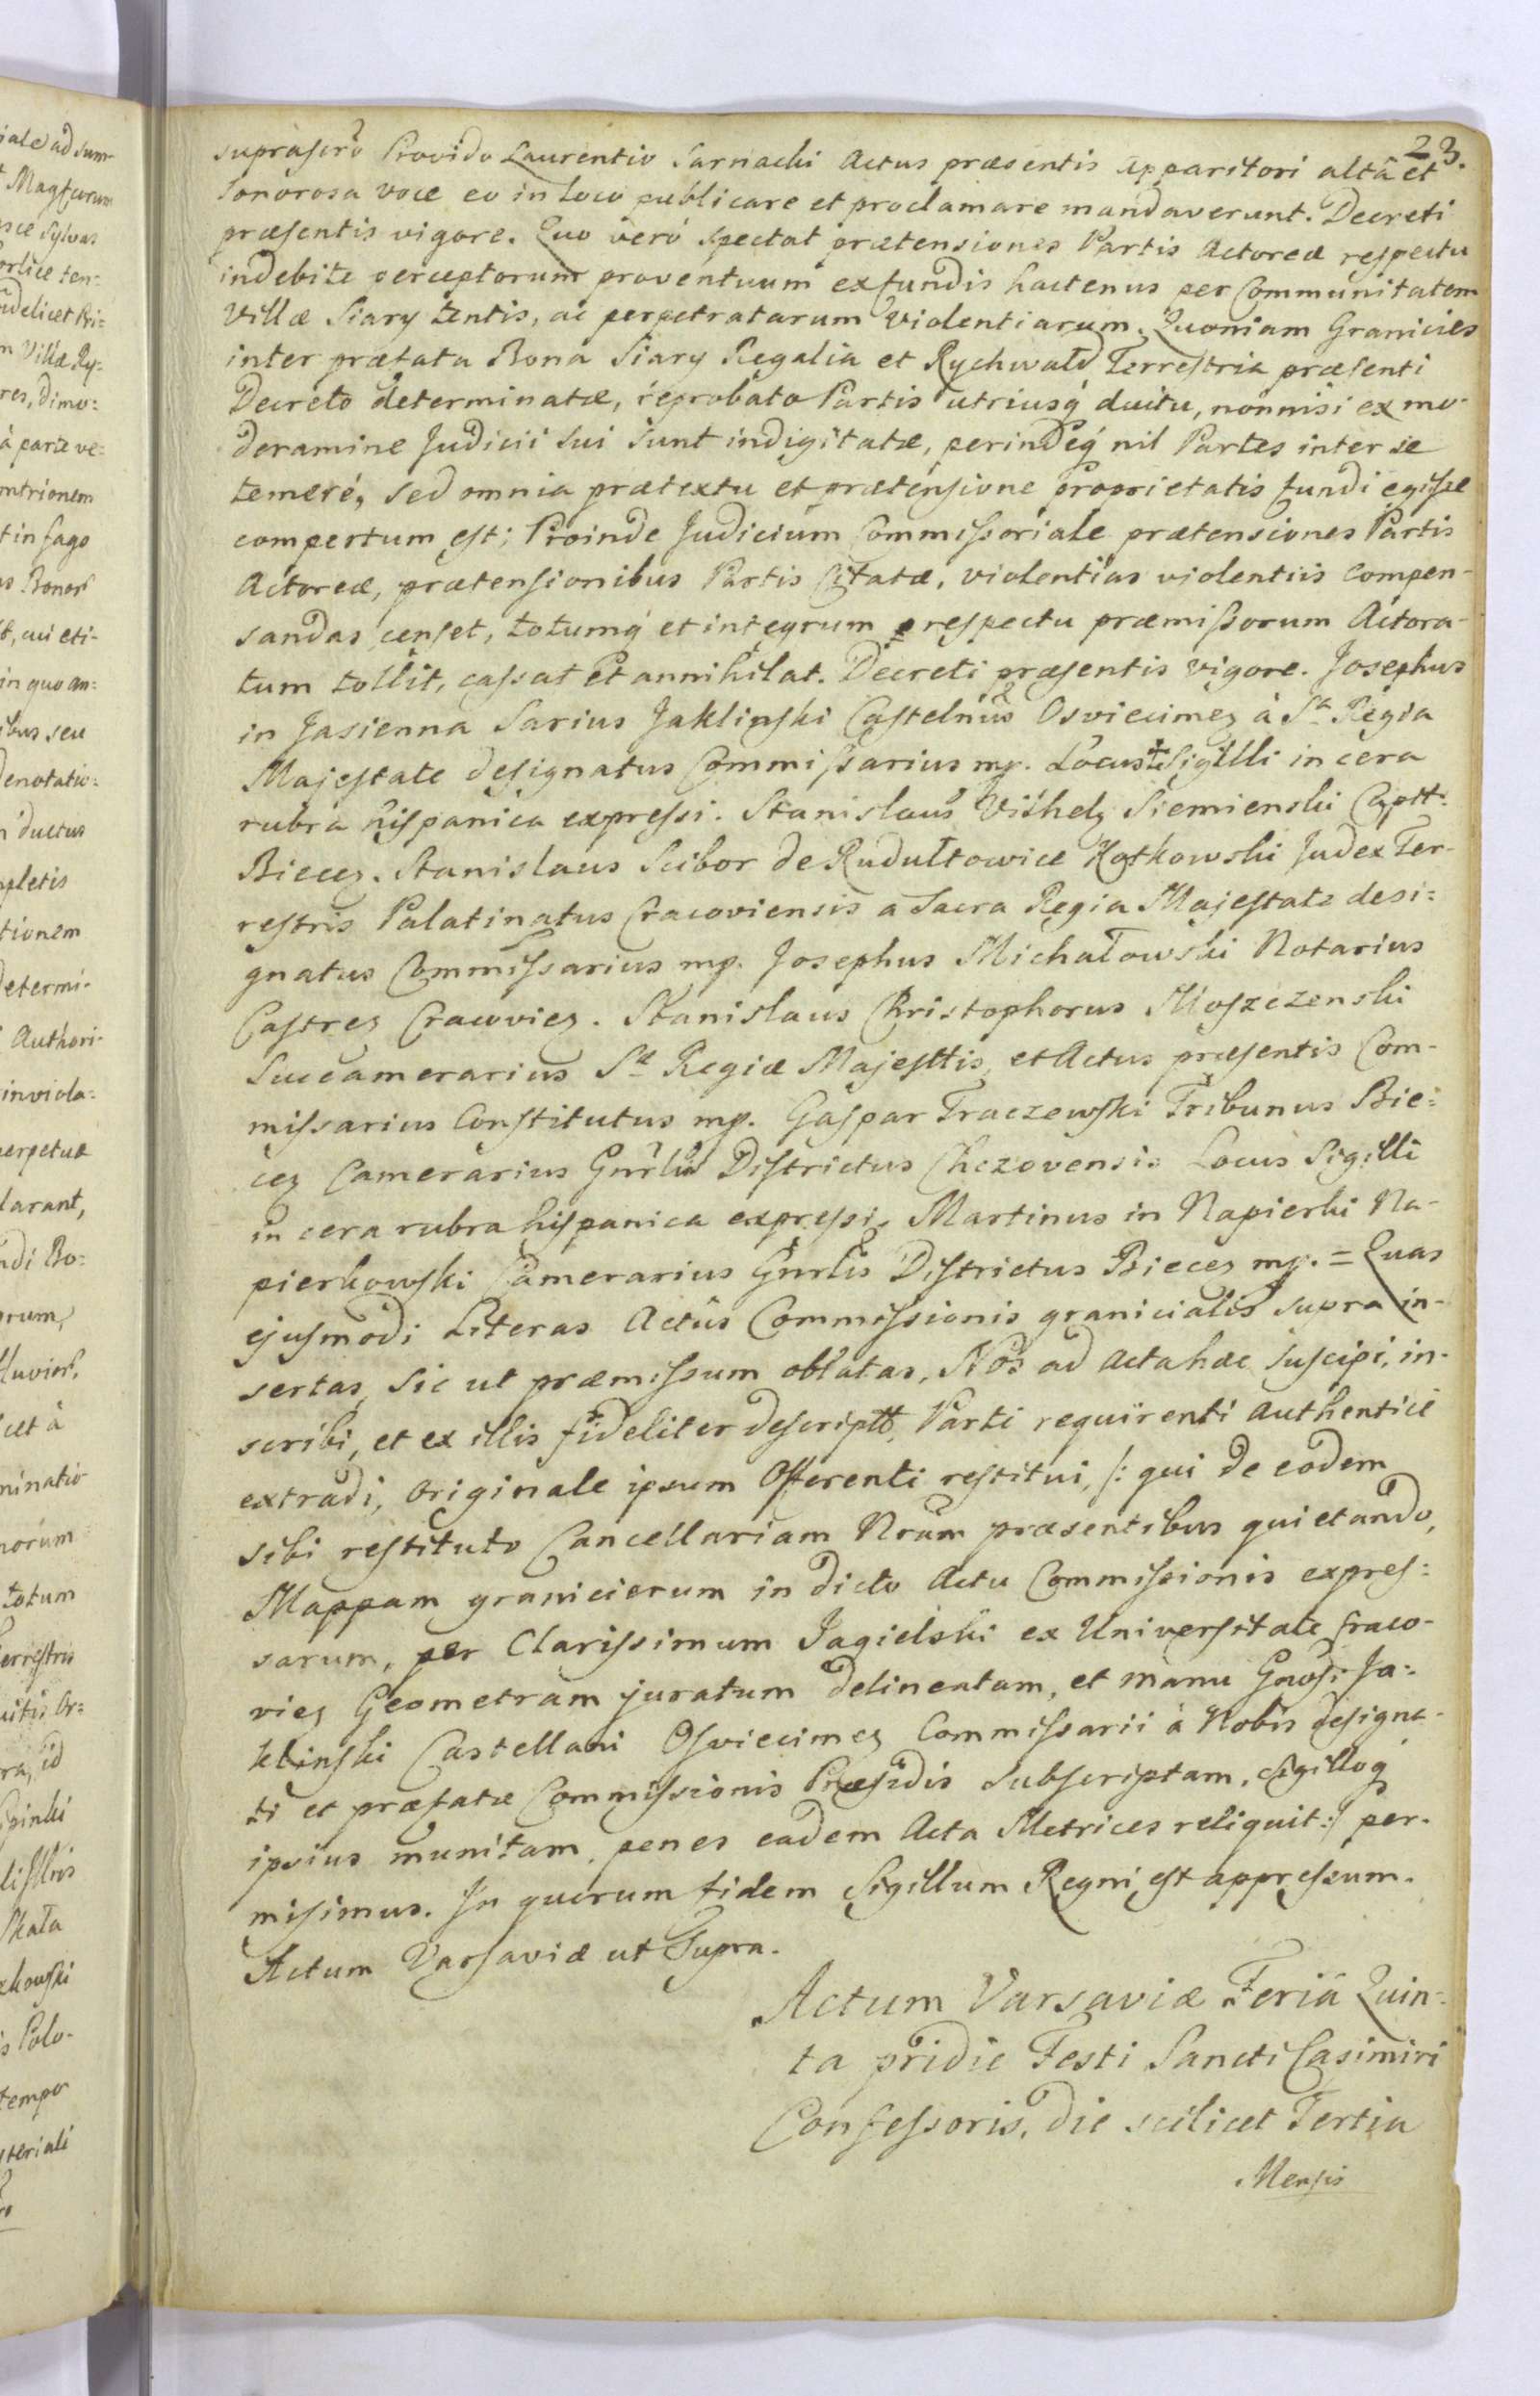 23.
suprascrõ Provido Laurentio Sarnachi Actus præsentis Apparitori altâ et
sonorosa voce eo in loco publicare et proclamare mandaverunt. Decreti
præsentis vigore. Quo verò spectat prætensiones Partis Actoreæ respectu
indebite perceptorum proventuum ex fundis hactenus per Communitatem
Villæ Siary tentis, ac perpetratarum violentiarum. Quoniam Granicies
inter præfata Bona Siary Regalia et Rychwałd Terrestria præsenti
Decreto determinatæ, reprobato Partis utriusq́ ductu, nonnisi ex mo-
deramine Judicii sui sunt indigitatæ, perindeq́ nil Partes inter se
temeré, sed omnia prætextu et prætensione proprietatis fundi egisse
compertum est; Proinde Judicium Commissoriale prætensiones Partis
Actoreæ, prætensionibus Partis Citatæ, violentias violentiis compen-
sandas censet, totumq́ et integrum respectu præmissorum Actora-
tum tollit, cassat et annihilat. Decreti præsentis vigore. Josephus
in Jasienna Sarius Jaklinski Castelnũs Osviecimeȝ à Sa Regia
Majestate designatus Commissarius mp. Locus Sigilli in cera
rubra hispanica expressi. Stanislaus Vilhelȝ Siemienski Captt.
Bieceȝ. Stanislaus Scibor de Rudułtowice Kotkowski Judex Ter-
restris Palatinatus Cracoviensis a Sacra Regia Majestate desi=
gnatus Commissarius mp. Josephus Michałowski Notarius
Castreȝ Cracovieȝ. Stanislaus Christophorus Moszczenski
Succamerarius Sæ Regiæ Majesttis, et Actus præsentis Com-
missarius Constitutus mp. Gaspar Traczewski Tribunus Bie=
ceȝ Camerarius Gnrlis Districtus Chczovensis Locus Sigilli
in cera rubra hispanica expressi. Martinus in Napierki Na-
pierkowski Camerarius Gnrlis Districtus Bieceȝ mp. = Quas
ejusmodi Literas Actûs Commissionis granicialis supra in-
sertas, sic ut præmissum oblatas, Nos ad Acta hæc suscipi, in-
scribi, et ex illis fideliter descriptt, Parti requirenti authentice
extradi, Originale ipsum Offerenti restitui, /: qui de eodem
sibi restituto Cancellariam Nrãm præsentibus quietando,
Mappam granicierum in dicto Actu Commissionis expres=
sarum, per Clarissimum Jagielski ex Universitate Craco-
vieȝ Geometram juratum delineatam, et manu Gnosi Ja-
klinski Castellani Osviecimeȝ Commissarii à Nobis designa-
ti et præfatæ Commissionis Præsidis subscriptam, Sigilloq́
ipsius munitam, penes eadem Acta Metrices reliquit :/ per-
misimus. In quorum fidem Sigillum Regni est appressum.
Actum Varsaviæ ut Supra.
Actum Varsaviæ Feriâ Quin-
ta pridie Festi Sancti Casimiri
Confessoris, die scilicet Tertia
Mensis